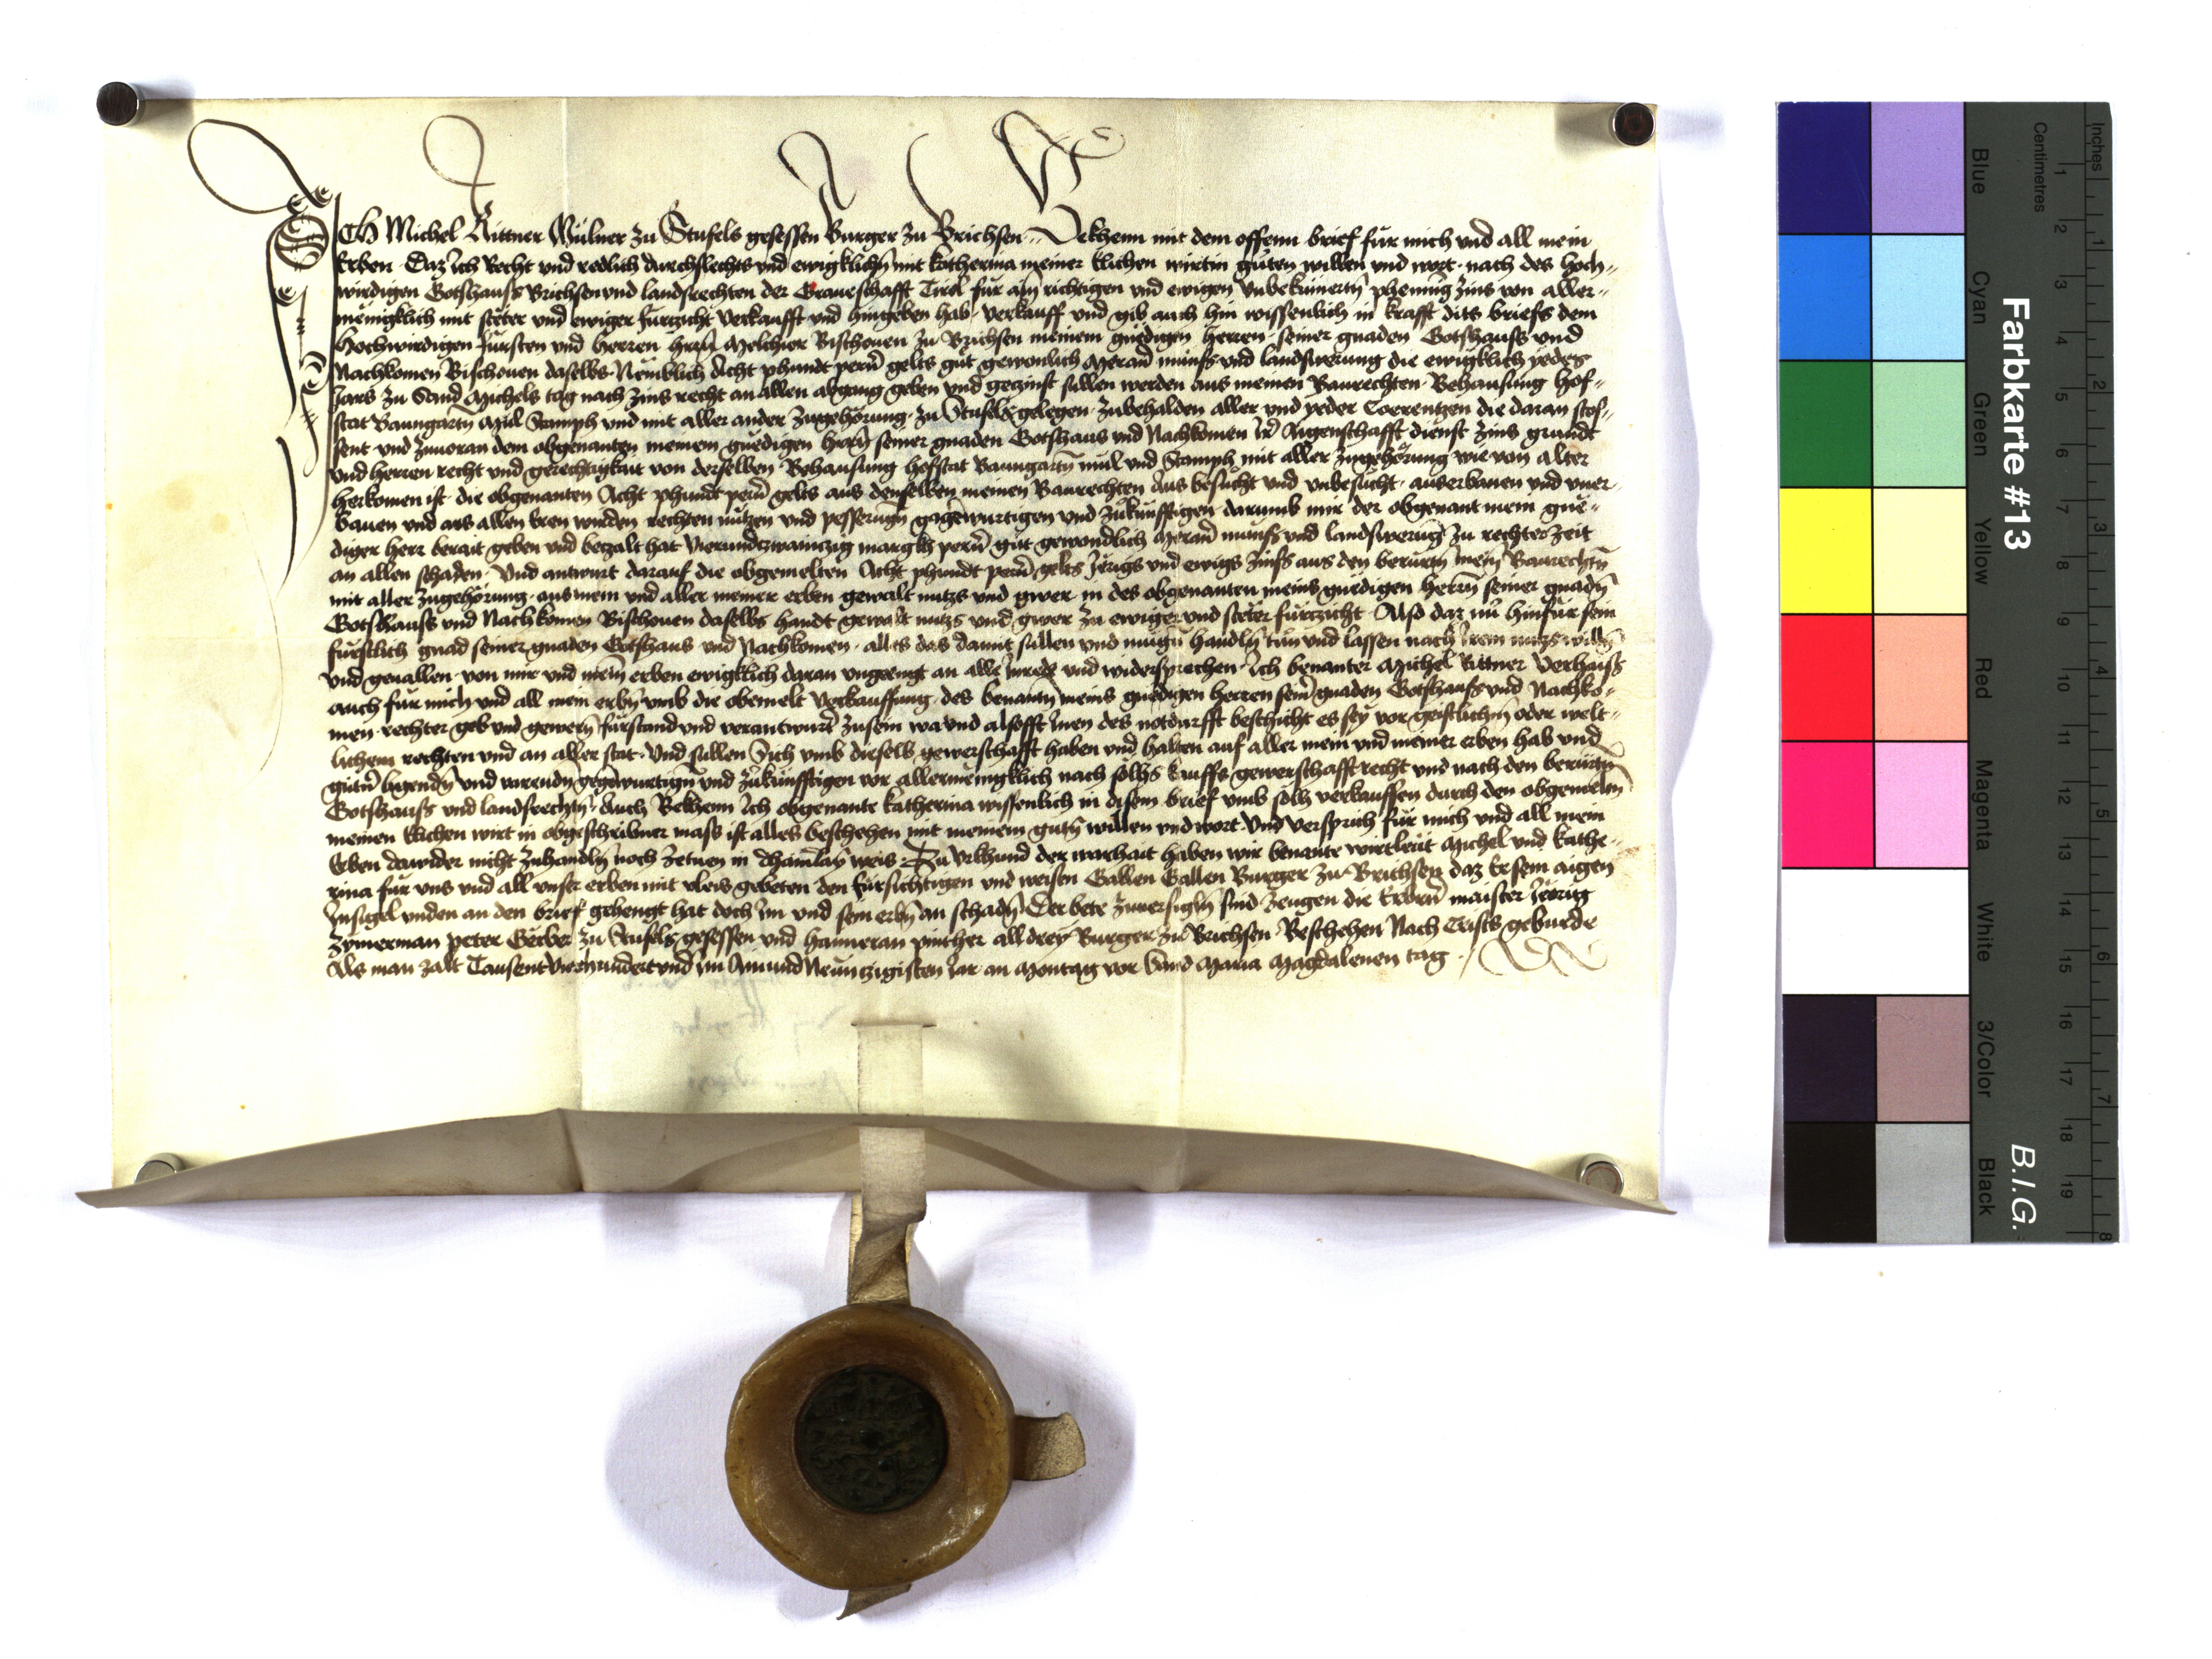 ICH Michel Rittner Mülner zu Stufels gesessen Burger zu Brichsen. Bekhenn mit dem offenn brief für mich vnd all mein
Erben Daz Ich Recht vnd redlich durchslechts vnd ewigklichñ mit katherina meiner Elichen wirtin gůten willen vnd wort. nach des hoch-
wirdigen Gotshauss Brichsen vnd landsrechten der Graueschafft Tirol für ain richtigen vnd ewigen vnbekumertñ phennig zins von aller-
menigklich mit steter vnd ewiger furtzicht verkaufft vnd hingeben hab. verkauff vnd gib auch hin wissenlich in krafft dits briefs dem
Hochwirdigen fürsten vnd herren hern Melchior Bischouen zu Brichsen meinem gnedigen herren. seiner gnaden Gotshauss vnd
Nachkomen Bischouen daselbs. Nemblich Acht phundt pern̄ gelts gůt gewonlich Meran̄ münss vnd landswerung die ewigklich yedes
Jars zu Sand Michels tag nach zins recht an allen abgang geben vnd gezinst sullen werden aus meinen Baurechten. Behausung hof-
stat Baumgartn Mul Stamph vnd mit aller ander zugehörung. zu Stufels gelegen. zubehalden aller vnd yeder Coerentzen die daran stos-
sent vnd zuuoran dem obgenanten meinem gnedigen hern̄ seiner gnaden Gotshaus vnd Nachkomen Ir̄ Aigenschafft dienst zins grundt
vnd herren recht vnd gerechtigkait von derselben Behausung hofstat Baumgartñ mul vnd Stamph mit aller zugehörung wie von alter
herkomen ist. die obgenanten Acht phundt pern̄ gelts aus denselben meinen Baurechten Aus besucht vnd vnbesucht. auserbauen vnd vner-
bauen vnd aus allen Eren wirden rechten nützen vnd pesserungñ gagewurtigen vnd zukunfftigen darumb mir der obgenant mein gne-
diger herr berait geben vnd betzalt hat vierundzwainczig margkh pern̄ gůt gewondlich Meran̄ münss vnd landswerug̃ zu rechter zeit
an allen schaden. Vnd antwurt darauf die obgemelten Acht phundt pern̄ gelts Jerigs vnd ewigs zinss aus den berurtñ mein̄ Baurechtñ
mit aller zugehörung. aus mein vnd aller meiner erben gewalt nutzs vnd gwer in des obgenanten meins gnedigen herrñ seiner gnadñ
Gotshauss vnd Nachkomen Bischouen daselbs handt gewalt nutzs vnd gwer zu ewiger vnd steter furtzicht. Also daz nů hinfür sein
fürstlich gnad seiner gnaden Gotshaus vnd Nachkomen. alles das damit sullen vnd mügñ handlñ tun vnd lassen nach Irem nutzs willñ
vnd geuallen. von mir vnd mein̄ erben ewigklich daran vngeengt an alle Inrede vnd widersprechen. Ich benanter Michel Rittner verhaiss
auch für mich vnd all mein erbñ vmb die obemelt verkauffung. des benantñ meins gnedigen herren sein̄ gnaden Gotshauss vnd Nachko-
men. rechter geb vnd gewerñ fürstand vnd verantwurt̄ zusein wa vnd alsofft Inen des notdurfft beschicht es sey vor geistlichñ oder welt-
lichem rechten vnd an aller stat. Vnd sullen Sich vmb dieselb gewerschafft haben vnd halten auf aller mein vnd meiner erben hab vnd
gütñ ligendñ vnd varendñ gegewurtigñ vnd zukünfftigen vor allermenigklich nach solhs kauffs gewerschafft recht vnd nach den berurtñ
Gotshauss vnd landsrechtñ. Auch Bekhenn Ich obgenante katherina wissenlich in disem brief vmb solh verkauffen durch den obgemeltñ
meinen Elichen wirt in obgeschribner mass ist alles beschehen mit meinem gutñ willen vnd wort. Vnd versprich für mich vnd all mein
Erben dawider nicht zuhandlñ noch zetuen in dhainlay weis. Zu Vrkhund der warhait haben wir benante wirtleut Michel vnd Kathe-
rina für vns vnd all vnser erben mit vleis gebeten den fürsichtigen vnd weisen Gallen Gallen Burger zu Brichsen daz Er sein aigen
Insigel vnden an den brief gehengt hat doch Im vnd sein erbñ an schadñ. Der bete zuuersiglñ sind zeugen die Erbern̄ maister Jeorig
zymerman peter Gerber zu Stufels gesessen vnd Hainneran pinther all drey Burger zu Brichsen. Beschehen Nach Crists geburde
Als man zalt Tausent vierhundert vnd im Ainundneuntzigisten Jar an Montag vor Sand Maria Magdalenen tag.
Farbkarte #13
B.I.G.
Blue Cyan Green Yellow Red Magenta White 3/Color Black
Centimetres 1 2 3 4 5 6 7 8 9 10 11 12 13 14 15 16 17 18 19
Inches 1 2 3 4 5 6 7 8